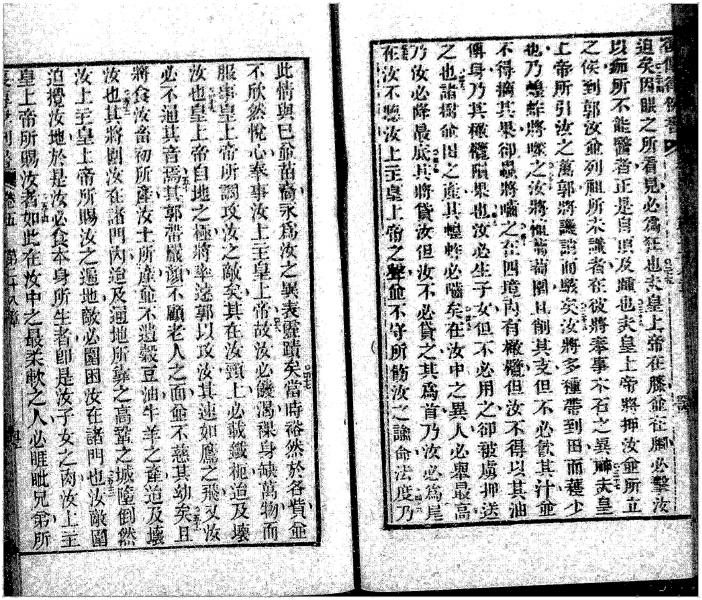 迫矣因眼之所看見必為狂也夫皇上帝在膝並在脚必擊汝
以痂所不能醫者正是自頂及踵也夫皇上帝將押汝並所立
之侯到郭汝並列祖所未識者在彼將奉事木石之異神夫皇
上帝所引汝之萬郭將譏誚而駭矣汝將多種帶到田而穫少
也乃蝗蚱將喫之汝將種葡萄園且削其支但不必飲其汁並
不得摘其果卻蟲將囓之在四境內有橄欖但汝不得以其油
傅身乃其橄欖隕果也汝必生子女但不必用之卻被虜押送
之也諸樹並田之產其蝗蚱必喘矣在汝中之異人必舉最高
乃汝必降最底其將貸汝但汝不必貸之其為首乃汝必為尾
在汝不聽汝上主皇上帝之聲並不守所飭汝之諭命法度乃
此情與已並苗裔永為汝之異表靈蹟矣當時裕然於各貨並
不欣然悅心奉事汝上主皇上帝故汝必饑渴祼身缺萬物而
服事皇上帝所調攻汝之敵矣其在汝頸上必載鐵梔迫及壞
汝也皇上帝自地之極將率遠郭以攻汝其速如鷹之飛又汝
必不通其音瑀其郭帶嚴顏不顧老人之面並不慈其幼矣且
將食汝畜初所產汝土所產並不遺穀豆油牛羊之產迫及壞
汝也其將圍汝在諸門內迨及遍地所靠之高鞏之城墮倒然
汝上主皇上帝所賜汝之遍地敵必圍困汝在諸門也汝敵圍
迫攪汝地於是汝必食本身所生者即是汝子女之肉汝上主
皇上帝所賜汝者如此在汝中之最柔軟之人必睚眦兄弟所